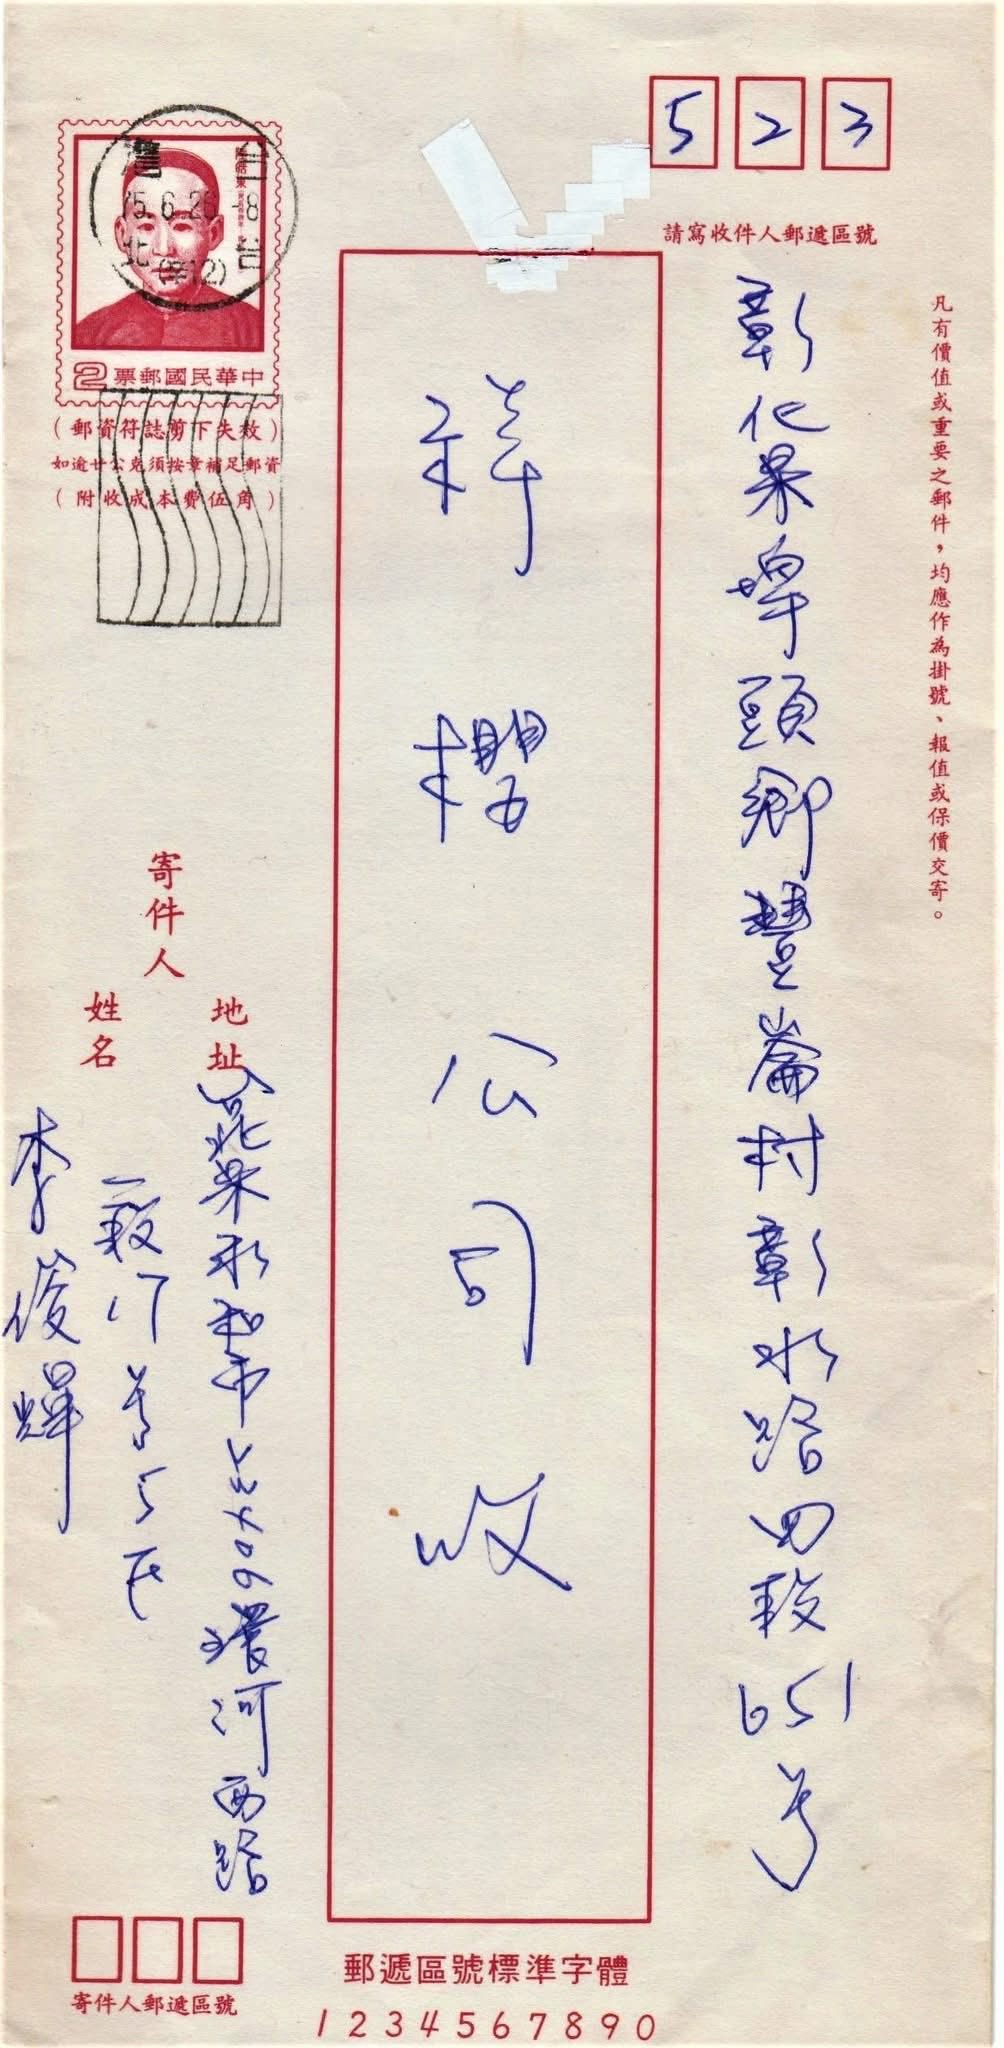 523
請寫收件人郵遞區號
凡有價值或重要之郵件，均應作為掛號、報值或保價交寄。
彰化県埤頭鄉豐崙村彰水路四段651号
祥櫻公司 收
台北
75.6.26.-8
台灣
中華民國郵票 2
(郵資符誌剪下失效)
如逾廿公克須按章補足郵資
(附收成本費伍角)
寄件人
地址
北県永和市 環河西路
一段 5
姓名
李俊輝
寄件人郵遞區號
郵遞區號標準字體
1234567890